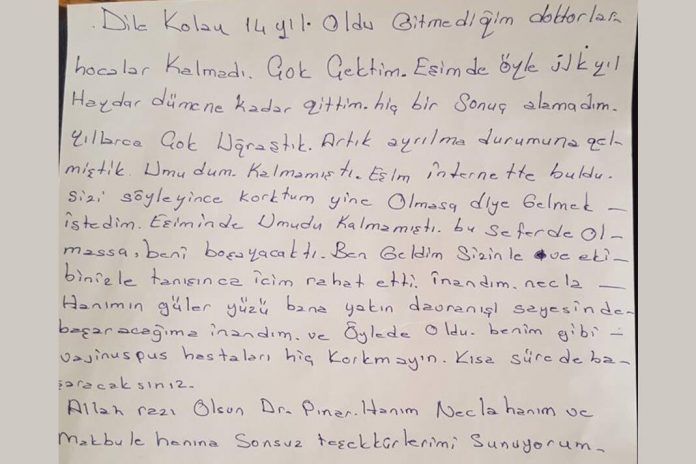 Dile Kolay 14 yıl. Oldu Gitmediğim doktorlar.
hocalar Kalmadı. Çok Çektim. Eşimde öyle ilk yıl
Haydar dümene kadar gittim. hiç bir Sonuç alamadım.
yıllarca Çok Uğraştık. Artık ayrılma durumuna gel-
miştik. Umudum. Kalmamıştı. Eşim internette buldu.
sizi söyleyince korktum yine Olmasa diye Gelmek —
istedim. Eşiminde Umudu Kalmamıştı. bu Seferde Ol-
massa, beni boşayacaktı. Ben Geldim Sizinle ve eki-
binizle tanışınca içim rahat etti. inandım. necla —
Hanımın güler yüzü bana yakın davranışı sayesinde.
başaracağıma inandım. ve Öylede Oldu. benim gibi —
vajinuspus hastaları hiç Korkmayın. Kısa sürede ba-
şaracaksınız.
Allah razı Olsun Dr. Pınar. Hanım Necla hanım ve
Makbule hanıma Sonsuz teşekkürlerimi Sunuyorum.